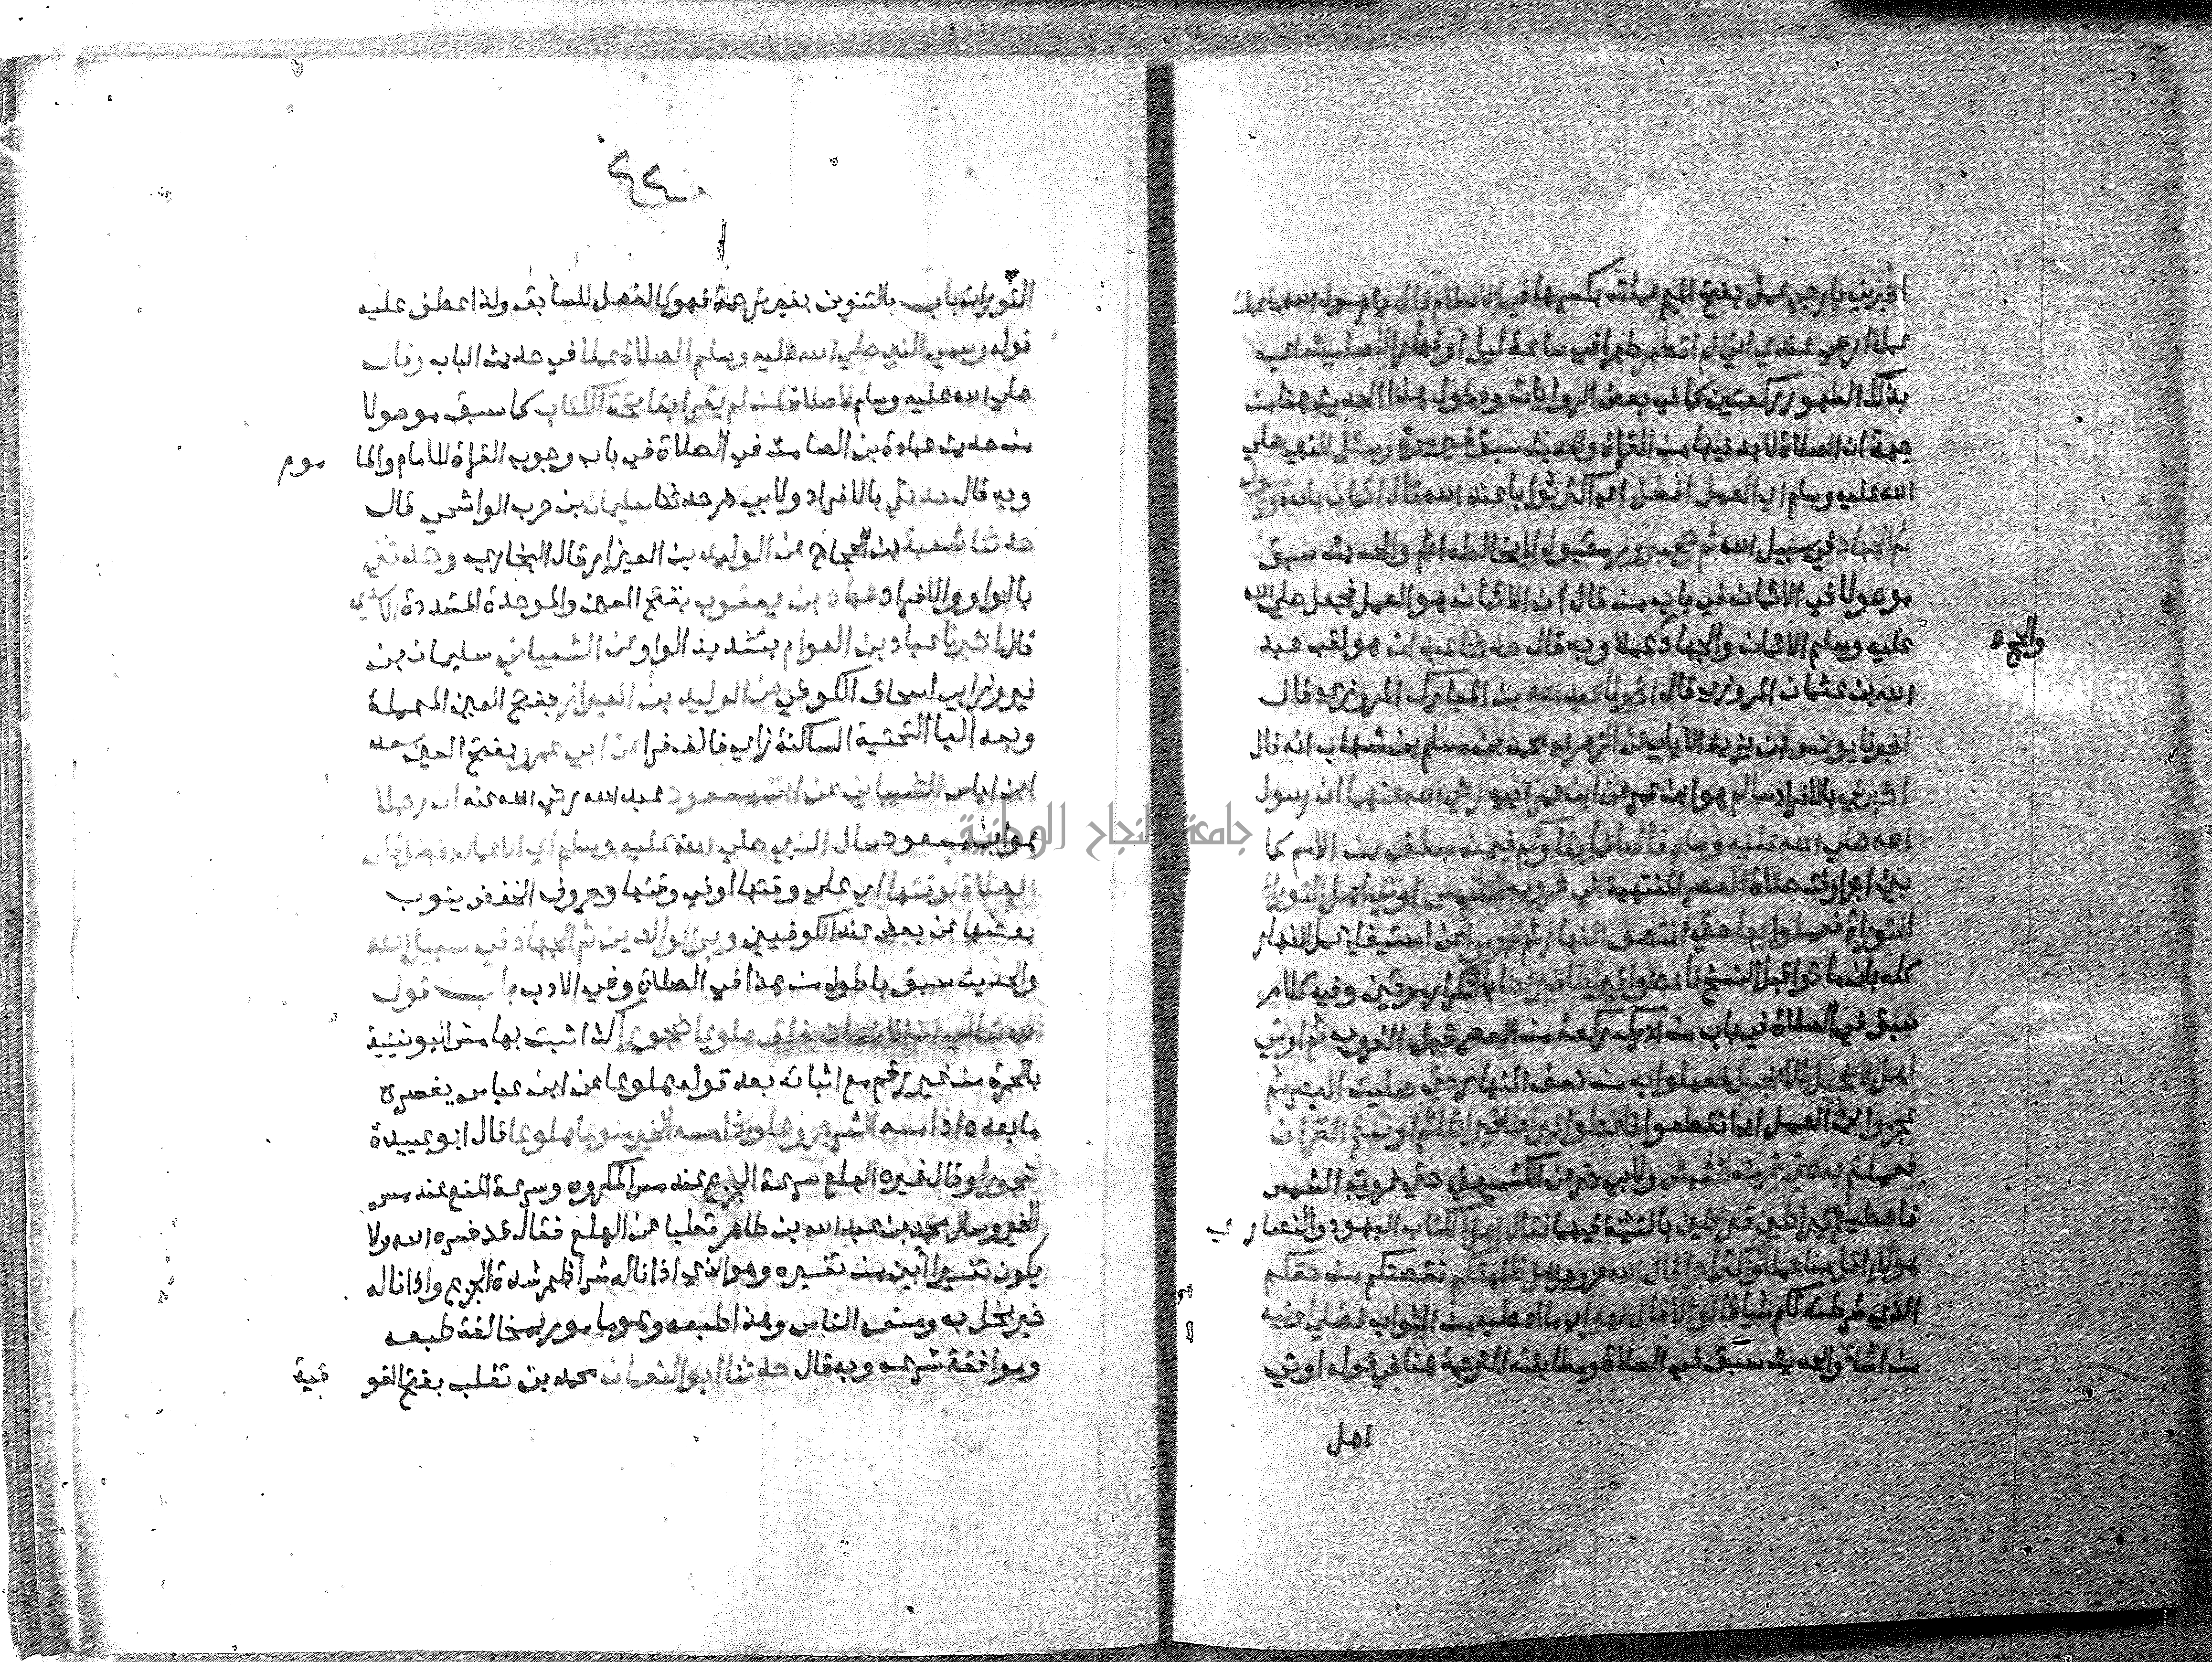 اخبرني بارجي عمل بفتح الميم عملته بكسرها في الاسلام قال يا رسول الله ما عملت
عملا ارجي عندي اني لم اتطهر طهرا في ساعة ليل او نهار الا صليت اي
بذلك الطهور ركعتين كما في بعض الروايات ودخول هذا الحديث هنا من
جهة ان الصلاة لابد فيها من القراة والحديث سبق غير مرة وسئل النبي صلي
الله عليه وسلم اي العمل افضل اي اكثر ثوابا عند الله قال ايمان بالله ورسوله
ثم الجهاد في سبيل الله ثم حج مبرور مقبول لا يخالطه اثم والحديث سبق
موصولا في الايمان في باب من قال ان الايمان هو العمل فجعل صلي الله
عليه وسلم الايمان والجهاد عملا وبه قال حدثنا عبدان هو لقب عبد
والحج
الله بن عثمان المروزي قال اخبرنا عبد الله بن المبارك المروزي قال
اخبرنا يونس بن يزيد الايلي عن الزهري محمد بن مسلم بن شهاب انه قال
اخبرني بالافراد سالم هو ابن عمر عن ابن عمر ابيه رضي الله عنهما ان رسول
الله صلي الله عليه وسلم قال انما بقاوكم فيمن سلف من الامم كما
بين اجزا وقت صلاة العصر المنتهية الي غروب الشمس اوتي اهل التوراة
التوراة فعملوا بها حتي انتصف النهار ثم عجزوا عن استيفا عمل النهار
كله بان ماتوا قبل النسخ فاعطوا قيراطا قيراطا بالتكرار مرتين وفيه كلام
سبق في الصلاة في باب من ادرك ركعة من العصر قبل الغروب ثم اوتي
اهل الانجيل الانجيل فعملوا به من نصف النهار حتي صليت العصر ثم
عجزوا عن العمل اي انقطعوا فاعطوا قيراطا قيراطا ثم اوتيتم القران
فعملتم به حتي غربت الشمس ولابي ذر عن الكشميهني حتي غروب الشمس
فاعطيتم قيراطين قيراطين بالتثنية فيهما فقال اهل الكتاب اليهود والنصاري
هولا اقل منا عملا واكثر اجرا قال الله عز وجل هل ظلمتكم نقصتكم من حقكم
الذي شرطته لكم شيا قالوا لا قال فهو اي ما اعطيته من الثواب فضلي اوتيه
من اشا والحديث سبق في الصلاة ومطابقته للترجمة هنا في قوله اوتي
اهل
٤٤٠
التوراة باب بالتنوين بغير ترجمة فهو كالفصل للسابق ولذا عطف عليه
قوله وسمي النبي صلي الله عليه وسلم الصلاة عملا في حديث الباب وقال
صلي الله عليه وسلم لا صلاة لمن لم يقرا بفاتحة الكتاب كما سبق موصولا
من حديث عبادة بن الصامت في الصلاة في باب وجوب القراة للامام والما موم
وبه قال حدثني بالافراد ولابي ذر حدثنا سليمان بن حرب الواشحي قال
حدثنا شعبة بن الحجاج عن الوليد بن العيزار قال البخاري وحدثني
بالواو والافراد عباد بن يعقوب بفتح العين والموحدة المشددة الاسدي
قال اخبرنا عباد بن العوام بتشديد الواو عن الشيباني سليمان بن
فيروز ابي اسحاق الكوفي عن الوليد بن العيزار بفتح العين المهملة
وبعد اليا التحتية الساكنة زاي فالف فرا عن ابي عمرو بفتح العين سعد
ابن اياس الشيباني عن ابن مسعود عبد الله رضي الله عنه ان رجلا
هو ابن مسعود سال النبي صلي الله عليه وسلم اي الاعمال افضل قال
الصلاة لوقتها اي علي وقتها او في وقتها وحروف الخفض ينوب
بعضها عن بعض عند الكوفيين وبر الوالدين ثم الجهاد في سبيل الله
والحديث سبق باطول من هذا في الصلاة وفي الادب باب قول
الله تعالي ان الانسان خلق هلوعا ضجورا كذا ثبت بهامش اليونينية
بالحمرة من غير رقم مع اثباته بعد قوله هلوعا عن ابن عباس يفسره
ما بعده اذا مسه الشر جزوعا واذا مسه الخير منوعا هلوعا قال ابو عبيدة
ضجورا وقال غيره الهلع سرعة الجزع عند مس المكروه وسرعة المنع عند مس
الخير وسال محمد بن عبد الله بن طاهر ثعلبا عن الهلع فقال قد فسره الله ولا
يكون تفسير ابين من تفسيره وهو الذي اذا ناله شر اظهر شدة الجزع واذا ناله
خير بخل به ومنعه الناس وهذا طبعه وهو مامور بمخالفة طبعه
وموافقة شرعه وبه قال حدثنا ابو النعمان محمد بن تغلب بفتح الفو قية
جامعة النجاح الوطنية